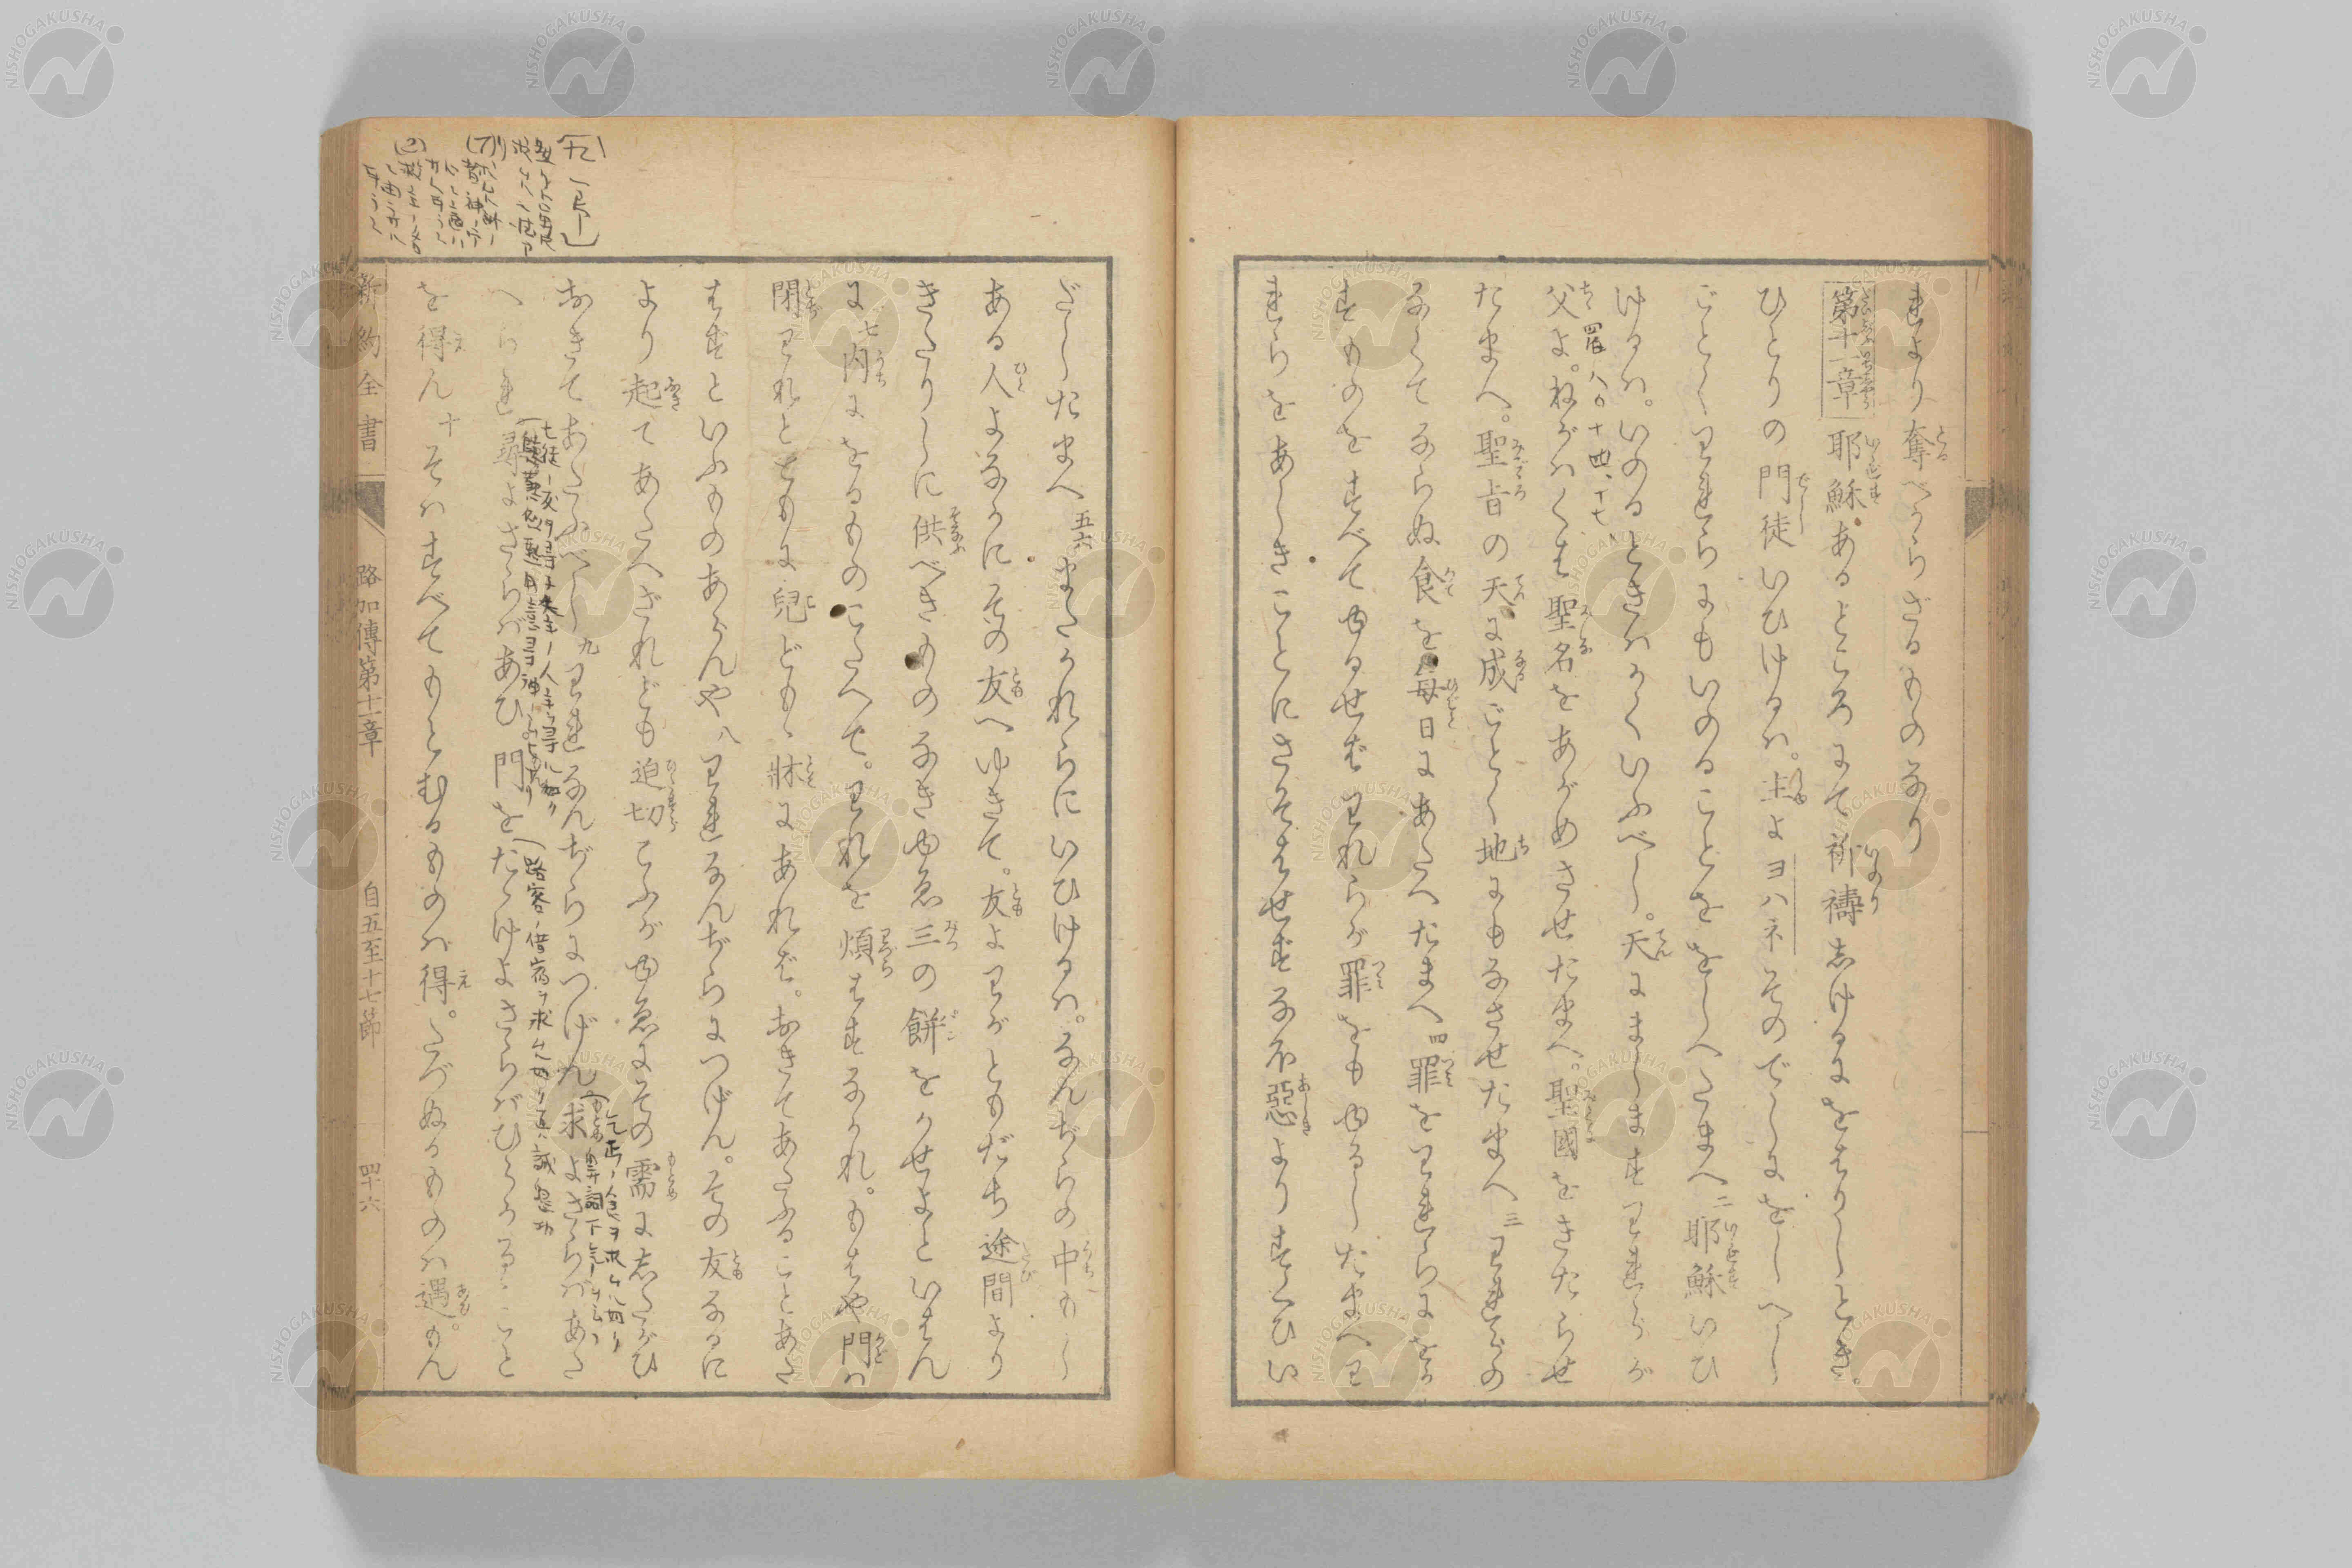 れより奪べからざるものなり
第十一章 耶穌あるところにて祈禱しけるにをはりしとき。
ひとりの門徒いひけるハ。主よヨハ子そのでしにをしへし
ごとくわれらにもいのることををしへたまへ 二 耶穌いひ
けるハ。いのるときハかくいふべし。天にましますわれらが
父よ。ねがハくは聖名をあがめさせたまへ。聖國をきたらせ
たまへ。聖旨の天に成ごとく地にもなさせたまへ 三 われらの
なくてならぬ食を毎日にあたへたまへ 四 罪をわれらにをか
すものをすべてゆるせばわれらが罪をもゆるしたまへわ
れらをあしきことにさそはせず不惡よりすくひい
だしたまへ 五六 またかれらにいひけるハ。なんぢらの中もし
ある人よなかにその友へゆきて。友よわがともだち途間より
きたりしに供べきものなきゆゑ三の餅をかせよといはん
に 七 内にをるものこたへて。われを煩はすなかれ。もはや門ハ
閉われとともに兒どもゝ牀にあれば。おきてあたふることあた
はずといふものあらんや 八 われなんぢらにつげん。その友なるに
より起てあたへざれども迫切こふがゆゑにその需にしたがひ
おきてあたふべし 九 われなんぢらにつげん。求よさらバあた
へられ 尋よさらバあひ 門をたゝけよさらバひらかるゝこと
を得ん 十 そハすべてもとむるものハ得。たづぬるものハ遇。もん
新約全書
路加傳第十一章
自五至十七節
四十六